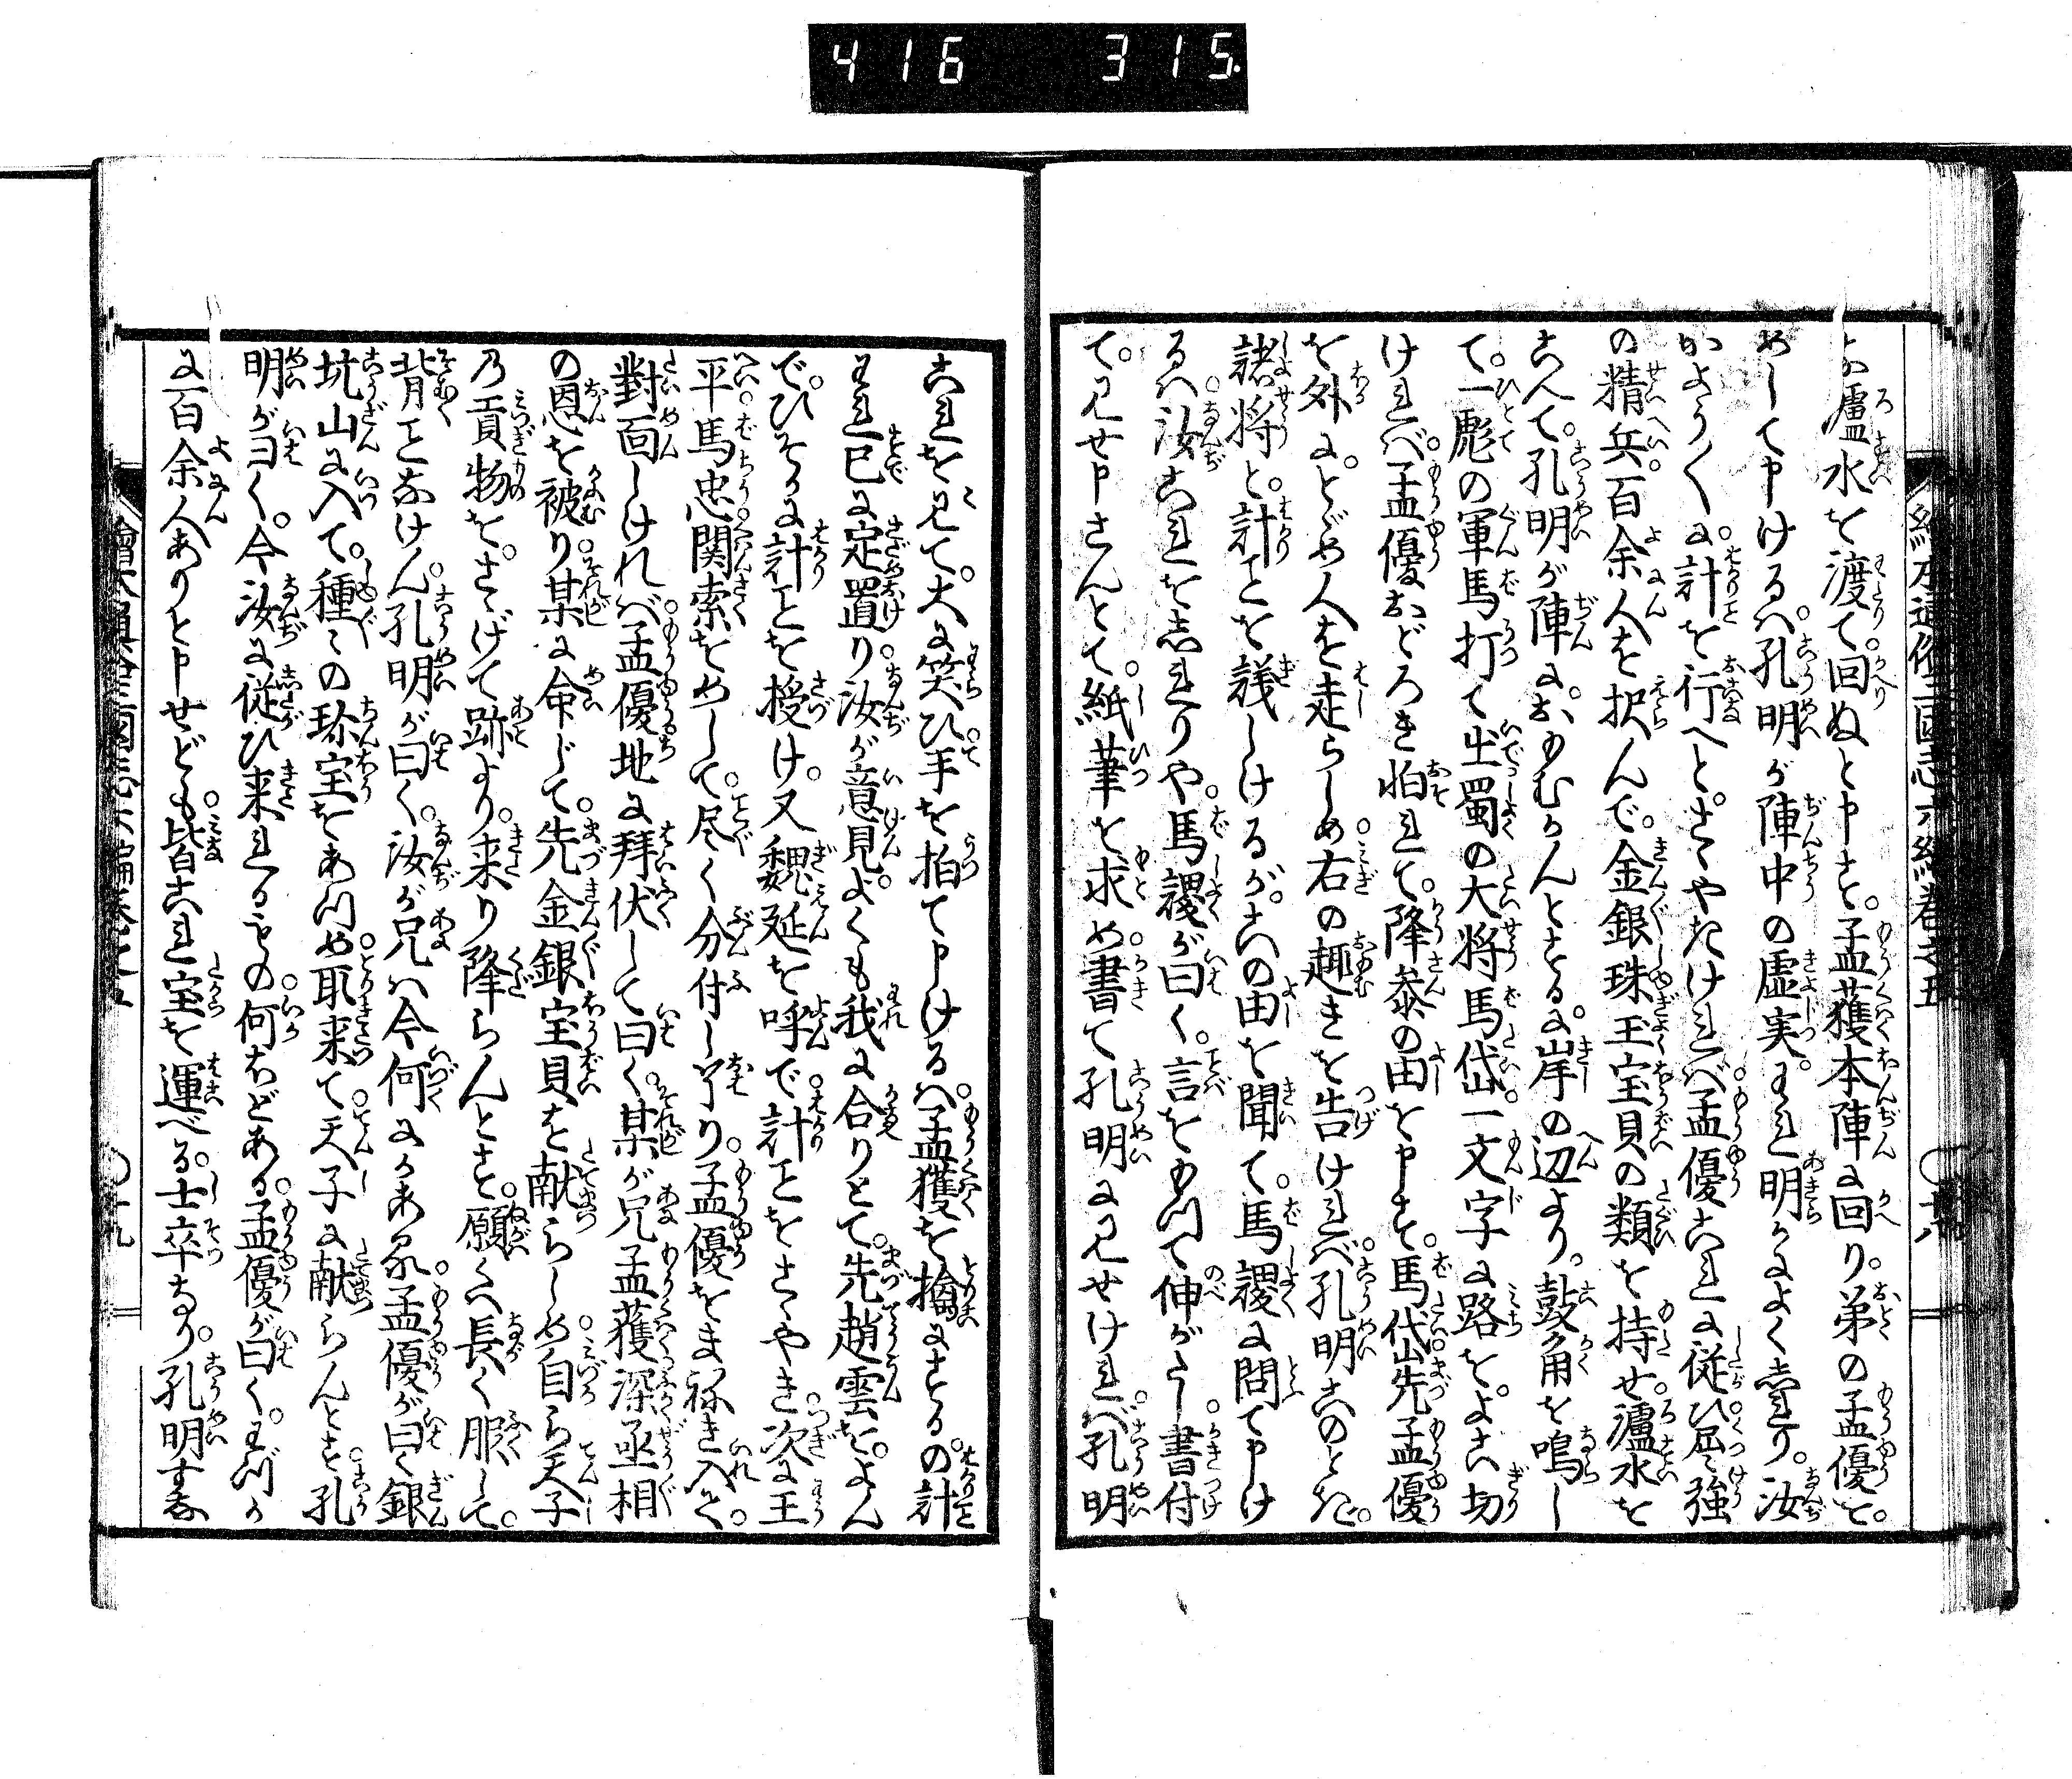 416 315
繪本通俗三國志六編巻之五
よ瀘水を渡て。回ぬと申す。孟獲本陣に回り。弟の孟優を。
めして申けるハ。孔明が陣中の虚実。われ明かによく尽せり。汝
かやう〳〵に。計を行へと。さゝやきけれバ。孟優これに従ひ。屈強
の精兵。百余人を択んで。金銀珠玉宝貝の類を持せ。瀘水を
こへて。孔明が陣に。おもむかんとする。に岸の辺より。鼓角を鳴し
て。一彪の軍馬打て出蜀の大将馬岱。一文字に路を。よこ切
けれバ。孟優おどろき怕れて。降参の由を申す。馬岱先孟優
を外に。とゞめ人を走らしめ。右の趣きを告けれバ。孔明このとき。
諸将と。計ことを議しけるが。この由を聞て。馬謖に問て申け
るハ。汝これをしれりや。馬謖が曰く。言をもつて伸がたし。書付
て。見せ申さんとて。紙筆を求め。書て孔明に見せけれバ。孔明
これを見て。大に笑ひ。手を拍て申けるハ。孟獲を擒にする。の計
われ已に定置り。汝が意見。よくも我に合りとて。先趙雲を。よん
で。ひそかに計ことを授け。又魏延を呼で。計ことをさゝやき。次に王
平。馬忠。関索をめして。尽く分付し了り。孟優をまねき入て。
對面しけれバ。孟優地に拜伏して曰く。某が兄孟獲深丞相
の恩を被り。某に命じて。先金銀宝貝を献らしめ。自ら天子
乃貢物を。さゝげて跡より。来り降らんとす。願くハ長く服して。
背ことなけん。孔明が曰く。汝が兄ハ今何にかある。孟優が曰く銀
坑山に入て。種〻の珍宝をあつめ。取来て。天子に献らんとす。孔
明が曰く。今汝に従ひ来れるもの。何ほどある。孟優が曰く。わづか
に一百余人ありと申せども。皆これ宝を運べる。士卒なり。孔明すな